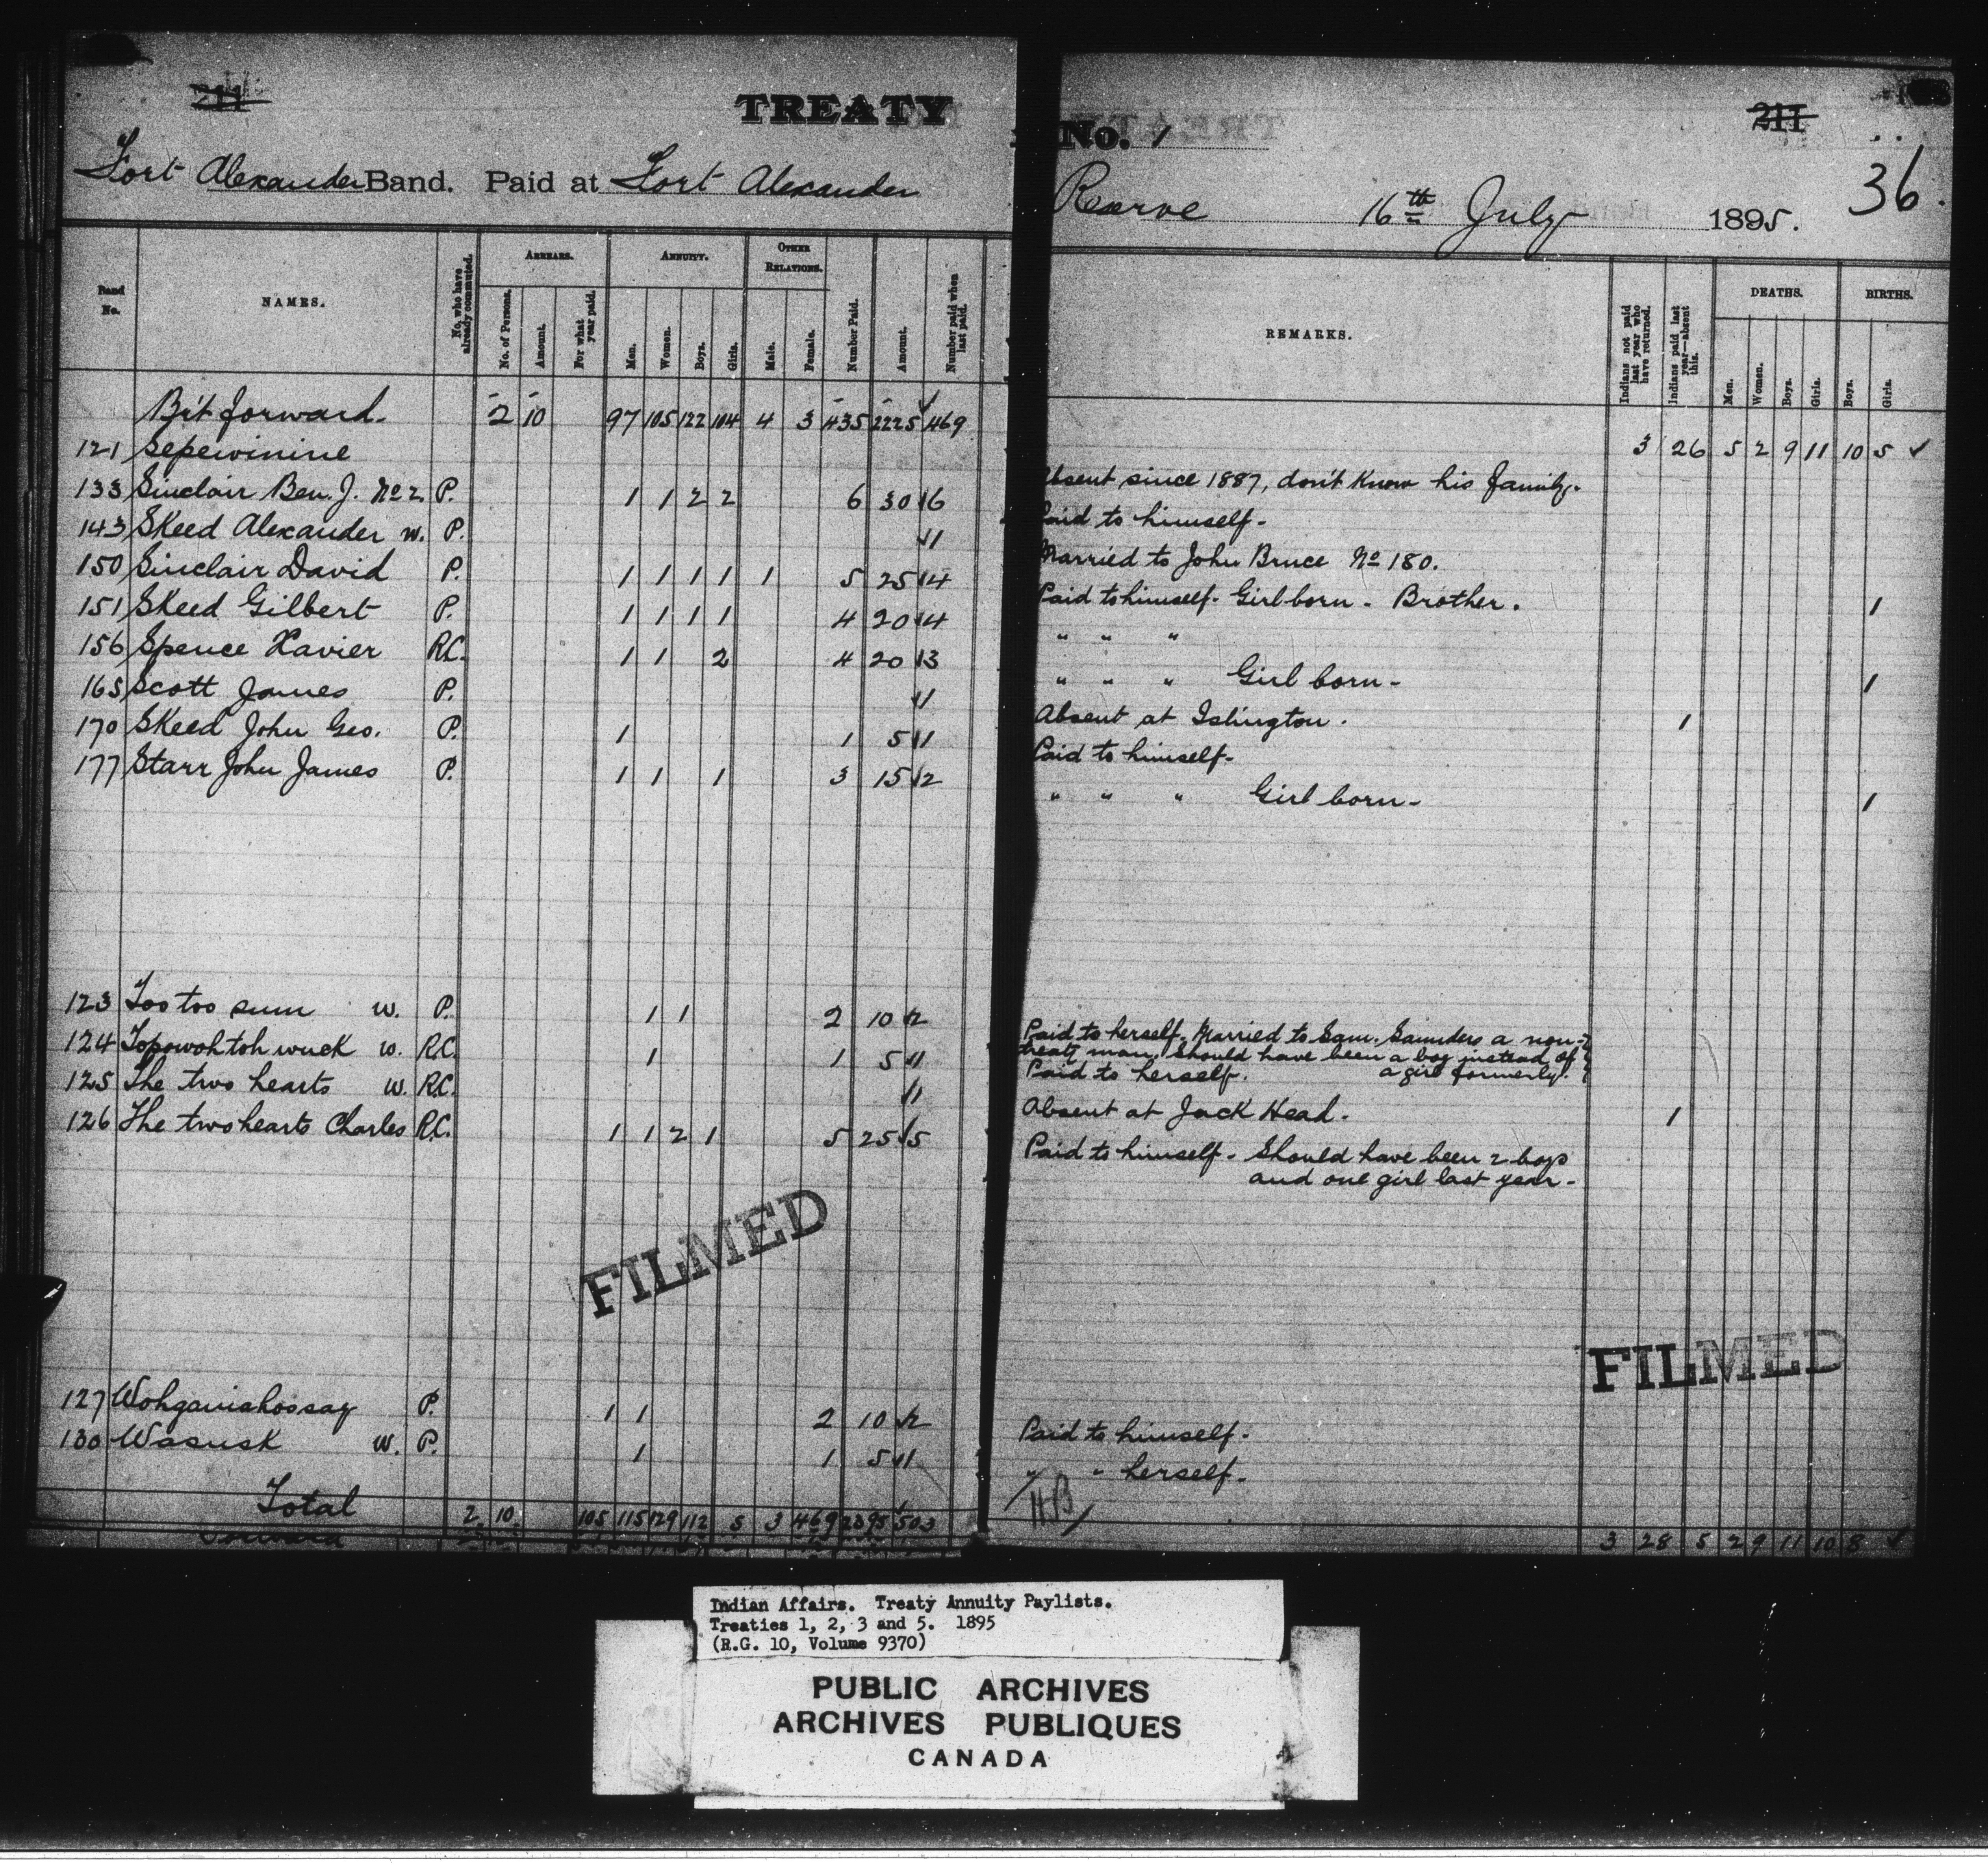 211
TREATY
Fort Alexander Band. Paid at Fort Alexander
Band No.
NAMES.
No. who have already commuted.
ARREARS.
No. of Persons.
Amount.
For what year paid.
ANNUITY.
Men.
Women.
Boys.
Girls.
OTHER RELATIONS.
Male.
Female.
Number Paid.
Amount.
Number paid when last paid.
Br't forward. 2 10 97 105 122 104 4 3 435 2225 469
121 Sepewinine
133 Sinclair Ben. J. No 2 P. 1 1 2 2 6 30 6
143 Skeed Alexander w. P. 1
150 Sinclair David P. 1 1 1 1 1 5 25 4
151 Skeed Gilbert P. 1 1 1 1 4 20 4
156 Spence Xavier R.C. 1 1 2 4 20 3
165 Scott James P. 1
170 Skeed John Geo. P. 1 1 5 1
177 Starr John James P. 1 1 1 3 15 2
123 Too too sum w. P. 1 1 2 10 2
124 Topowohtoh wuck w. R.C. 1 1 5 1
125 The two hearts w. R.C. 1
126 The two hearts Charles R.C. 1 1 2 1 5 25 5
FILMED
127 Wohganishoosay P. 1 1 2 10 2
130 Wasusk w. P. 1 1 5 1
Total 2 10 105 115 129 112 5 3 469 2395 503
211
No. 1
36.
Reserve 16th July 1895.
REMARKS.
Indians not paid last year who have returned.
Indians paid last year—absent this.
DEATHS.
Men.
Women.
Boys.
Girls.
BIRTHS.
Boys.
Girls.
3 26 5 2 9 11 10 5 ✓
Absent since 1887, don't know his family.
Paid to himself.
Married to John Bruce No 180.
Paid to himself. Girl born. Brother. 1
" " "
" " " Girl born. 1
Absent at Islington. 1
Paid to himself.
" " " Girl born. 1
Paid to herself. Married to Sam. Saunders a non-
treaty man. Should have been a boy instead of
Paid to herself. a girl formerly.
Absent at Jack Head. 1
Paid to himself. Should have been 2 boys
and one girl last year.
FILMED
Paid to himself.
" " herself.
HB
3 28 5 2 9 11 10 8 ✓
Indian Affairs. Treaty Annuity Paylists.
Treaties 1, 2, 3 and 5. 1895
(R.G. 10, Volume 9370)
PUBLIC ARCHIVES
ARCHIVES PUBLIQUES
CANADA